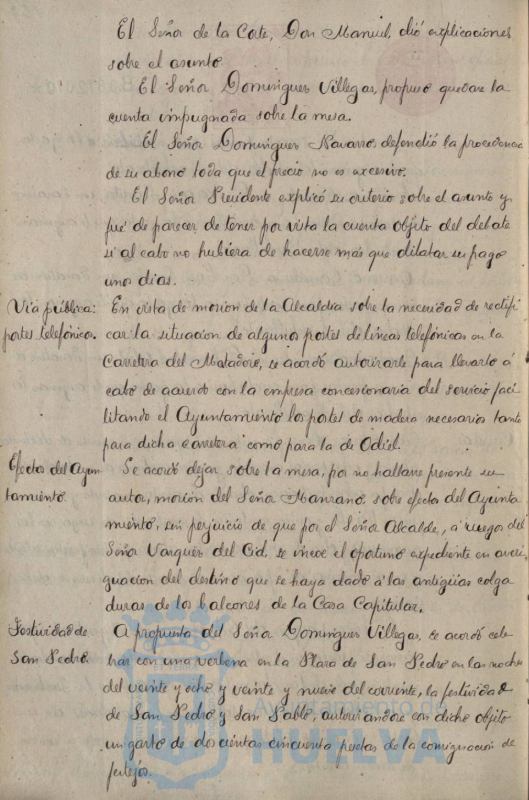 El Señor de la Corte, Don Manuel, dió explicaciones
sobre el asunto.
El Señor Dominguez Villegas, propuso quedare la
cuenta impugnada sobre la mesa.
El Señor Dominguez Navarro, defendió la procedencia
de su abono toda que el precio no es excesivo.
El Señor Presidente explicó su criterio sobre el asunto y
fué de parecer de tener por vista la cuenta objeto del debate
si al cabo no hubiera de hacerse más que dilatar su pago
unos dias.
Via pública:
postes telefónicos.
En vista de moción de la Alcaldía sobre la necesidad de rectifi
car la situación de algunos postes de lineas telefónicas en la
Carretera del Matadero, se acordó autorizarle para llevarlo á
cabo de acuerdo con la empresa concesionaria del servicio faci
litando el Ayuntamiento los postes de madera necesarios tanto
para dicha carretera como para la de Odiel.
Efectos del Ayun
tamiento.
Se acordó dejar sobre la mesa, por no hallarse presente su
autor, moción del Señor Manzano, sobre efectos del Ayunta
miento, sin perjuicio de que por el Señor Alcalde, á ruegos del
Señor Vazquez del Cid, se incoe el oportuno expediente en averi
guacion del destino que se haya dado á las antigüas colga
duras de los balcones de la Casa Capitular.
Festividad de
San Pedro.
A propuesta del Señor Dominguez Villegas, se acordó cele
brar con una verbena en la Plaza de San Pedro en las noches
del veinte y ocho y veinte y nueve del corriente, la festividad
de San Pedro y San Pablo, autorizandose con dicho objeto
un gasto de doscientas cincuenta pesetas de la consignacion de
festejos.
Ayuntamiento de
HUELVA